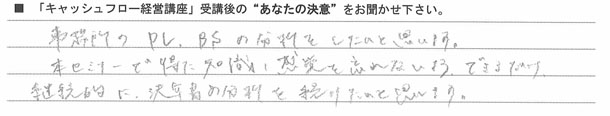 ■ 「キャッシュフロー経営講座」受講後の“あなたの決意”をお聞かせ下さい。
事務所のPL、BSの分析をしたいと思います。
本セミナーで得た知識、感覚を忘れないよう、できるだけ
継続的に、決算書の分析を続けたいと思います。